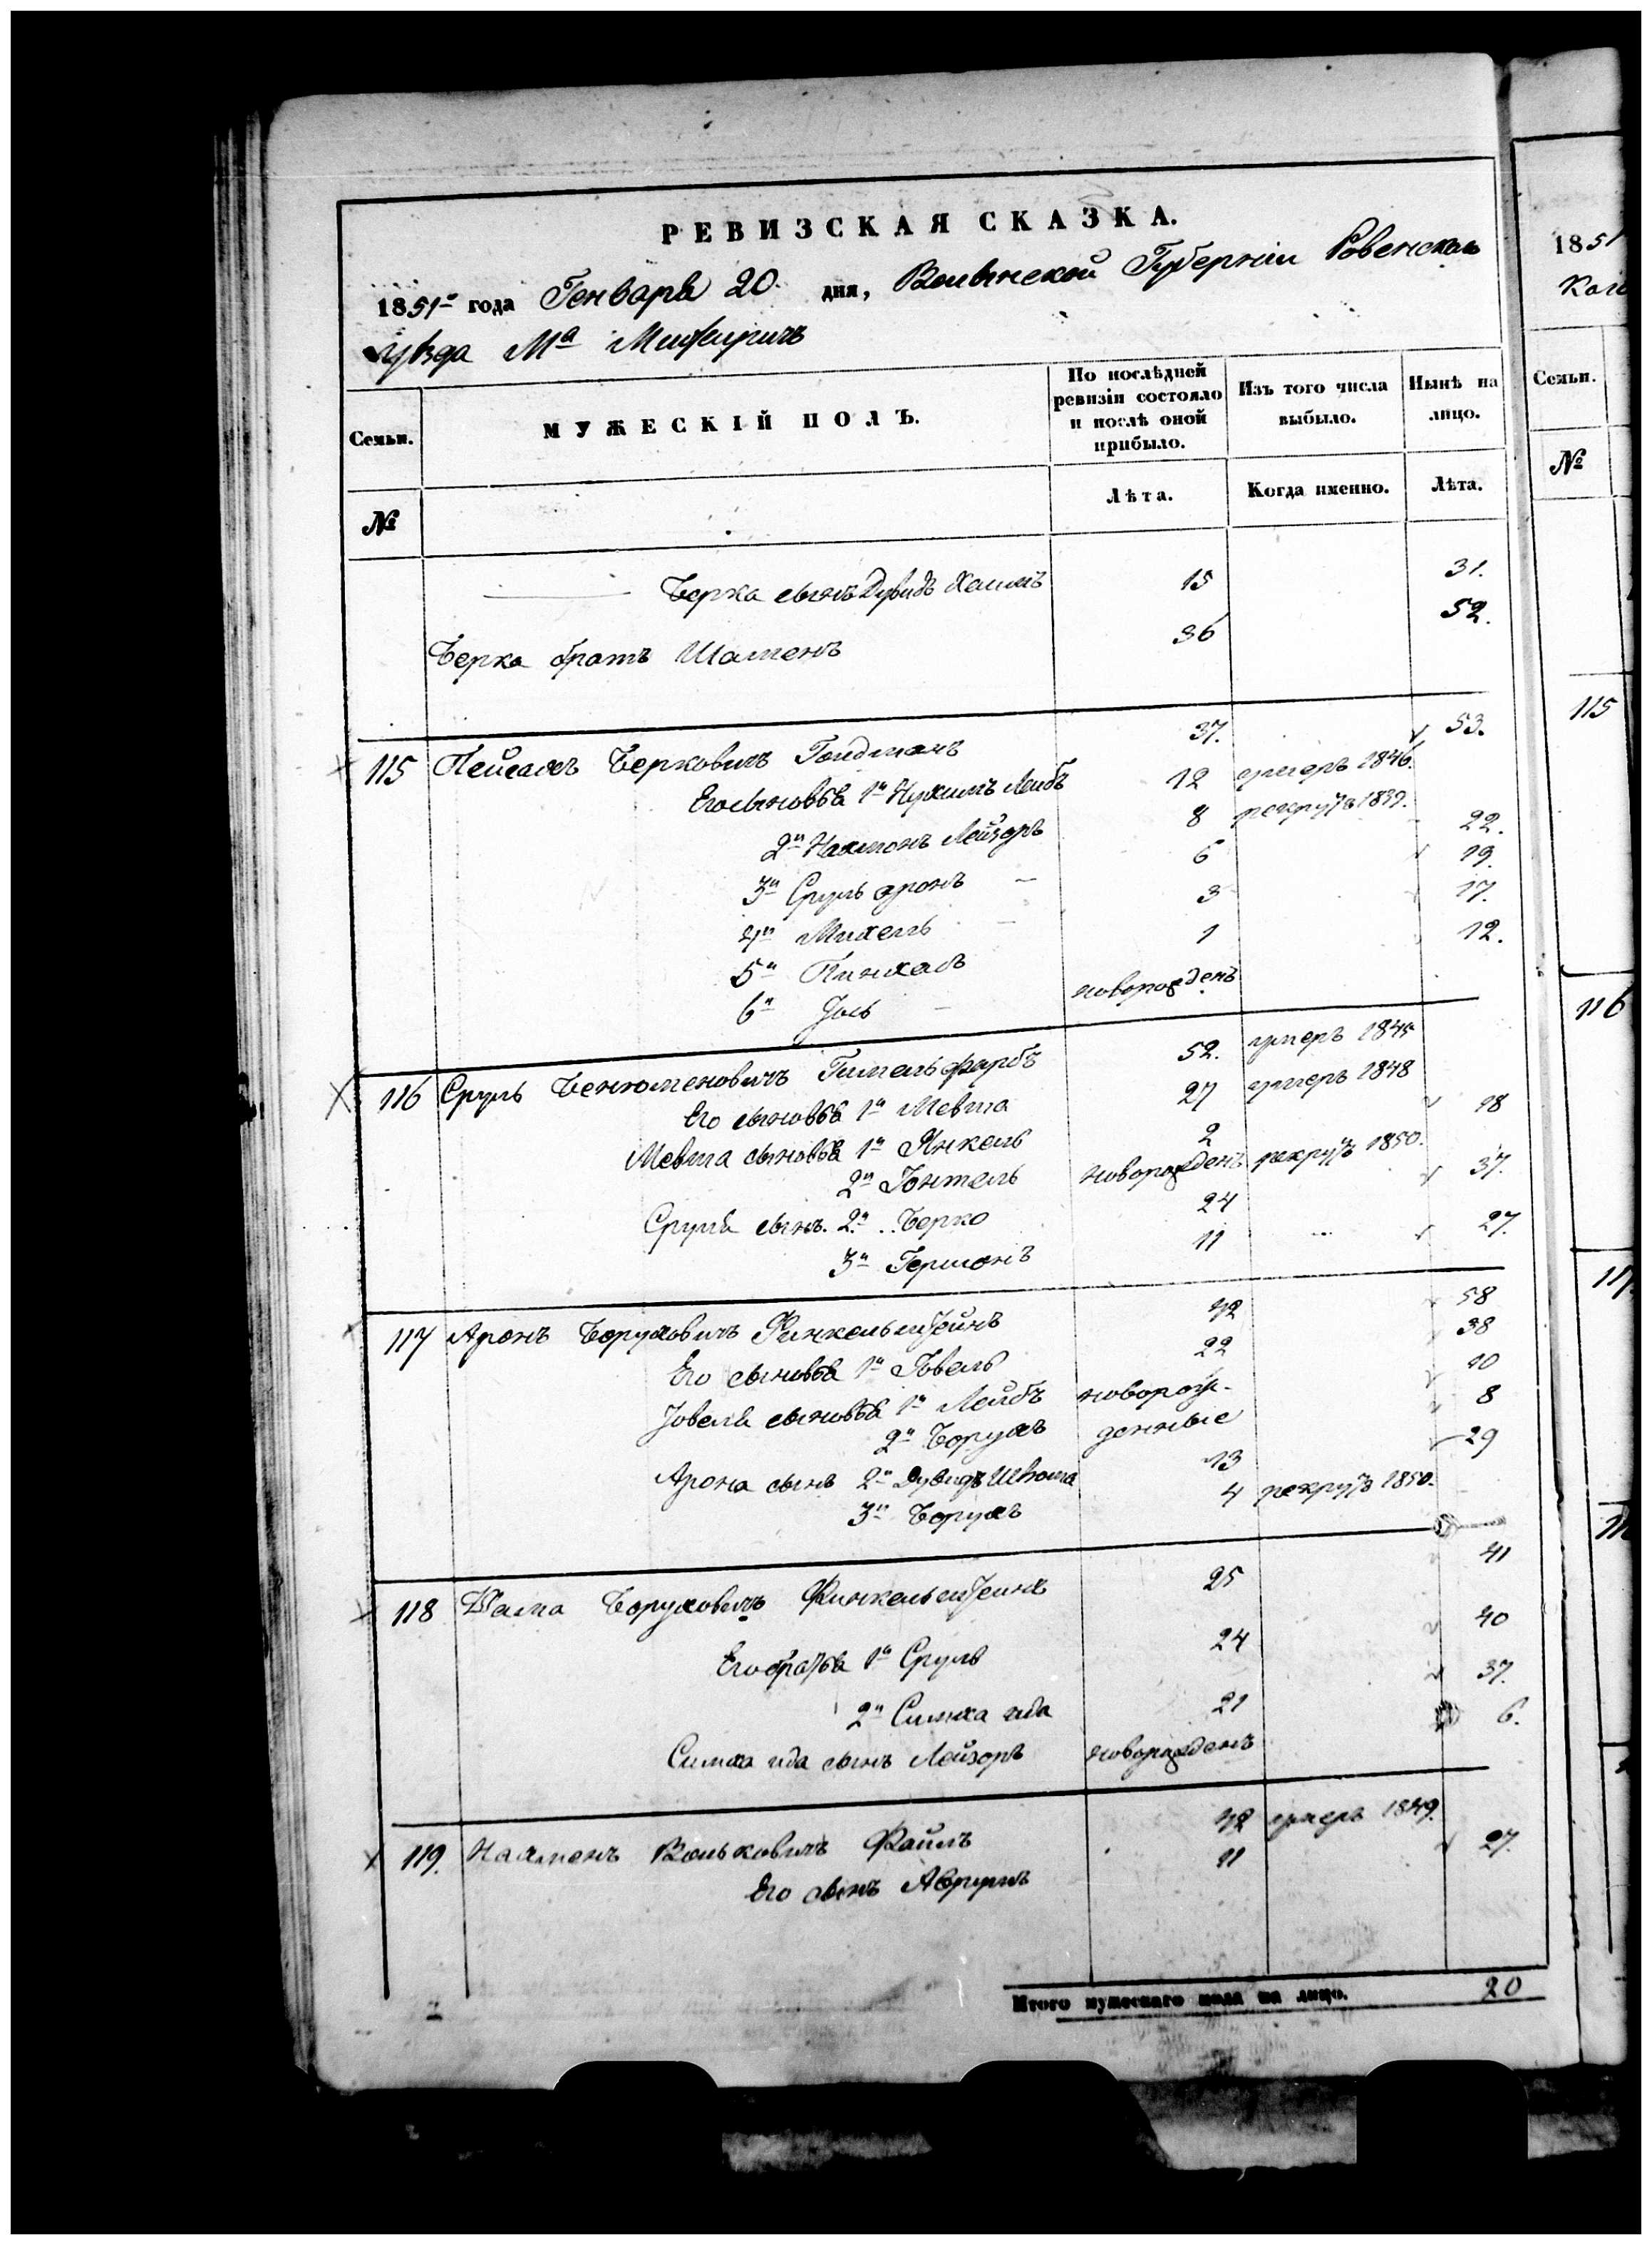 РЕВИЗСКАЯ СКАЗКА.
1851го года Генваря 20 дня, Волынской Губерніи Ровенскаго
уѣзда Ма Межирича
Семьи. МУЖЕСКІЙ ПОЛЪ. По послѣдней ревизіи состояло и послѣ оной прибыло. Изъ того числа выбыло. Нынѣ на лицо.
№ Лѣта. Когда именно. Лѣта.
Берка сынъ Дувидъ Хаимъ 15 31.
Берка братъ Шломенъ 36 52.
115 Пейсахъ Берковичъ Гойдманъ 37. 53.
Его сыновья 1й Нухимъ Лейбъ 12 умеръ 1846.
2й Нахманъ Лейзоръ 8 рекрутъ 1839.
3й Сруль Аронъ 6 22.
4й Михель 3 19.
5й Пинхасъ 1 17.
6й Іось новорожденъ 12.
116 Сруль Бенюменовичъ Гимельфарбъ 52. умеръ 1845
Его сыновья 1й Мевша 27 умеръ 1848
Мевша сыновья 1й Янкель 2 18
2й Іонтель новорожденъ рекрутъ 1850.
Сруля сынъ. 2й Берко 24 37.
3й Гершонъ 11 27.
117 Аронъ Боруховичъ Финкельштейнъ 42 58
Его сыновья 1й Іовель 22 38
Іовеля сыновья 1й Лейбъ новорож- 10
2й Борухъ денные 8
Арона сынъ 2й Дувидъ Шлома 13 29
3й Борухъ 4 рекрутъ 1850.
118 Боруховичъ Финкельштейнъ 25 41
Его братья 1й Сруль 24 40
2й Симха ида 21 37.
Симха ида сынъ Лейзоръ новорожденъ 6.
119. Нахменъ Вольковичъ Файнъ 42 умеръ 1849.
Его сынъ Аврумъ 11 27.
Итого мужескаго пола на лицо. 20
1851
Семьи.
№
115
116